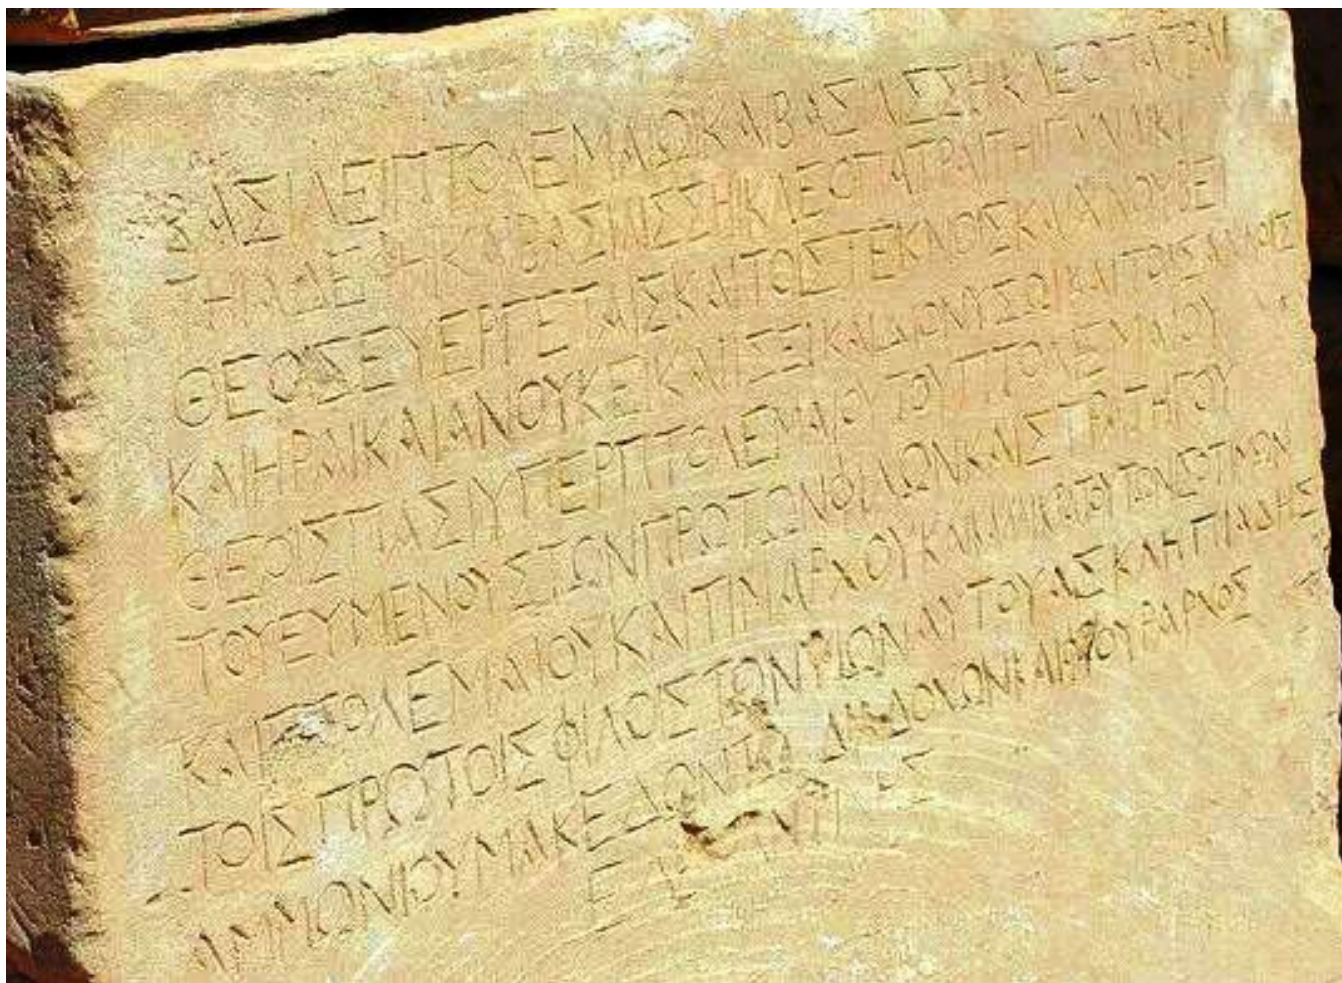 ΒΑΣΙΛΕΙΠΤΟΛΕΜΑΙΩΚΑΙΒΑΣΙΛΙΣΣΗΙΚΛΕΟΠΑΤΡΑΙ
ΤΗΙΑΔΕΛΦΗΙΚΑΙΒΑΣΙΛΙΣΣΗΙΚΛΕΟΠΑΤΡΑΙΤΗΙΓΥΝΑΙΚΙ
ΘΕΟΙΣΕΥΕΡΓΕΤΑΙΣΚΑΙΤΟΙΣΤΕΚΝΟΙΣΚΑΙΑΜΟΝΡΑΣΟΝΘΗΡΕΙ
ΚΑΙΗΡΑΙΚΑΙΑΝΟΥΚΕΙΚΑΙΙΣΕΙΚΑΙΔΙΟΝΥΣΩΙΚΑΙΤΟΙΣΑΛΛΟΙΣ
ΘΕΟΙΣΠΑΣΙΥΠΕΡΠΤΟΛΕΜΑΙΟΥΤΟΥΠΤΟΛΕΜΑΙΟΥ
ΤΟΥΕΥΜΕΝΟΥΣΤΩΝΠΡΩΤΩΝΦΙΛΩΝΚΑΙΣΤΡΑΤΗΓΟΥ
ΚΑΙΠΤΟΛΕΜΑΙΟΥΚΑΙΤΙΜΑΡΧΟΥΚΑΙΚΑΙΤΩΝ
ΤΟΙΣΠΡΩΤΟΙΣΦΙΛΟΙΣΤΩΝΥΙΩΝΑΥΤΟΥΑΣΚΛΗΠΙΑΔΗΣ
ΑΜΜΩΝΙΟΥΜΑΚΕΔΩΝΤΩΝΔΙΑΔΟΧΩΝΚΑΙΦΡΟΥΡΑΡΧΟΣ